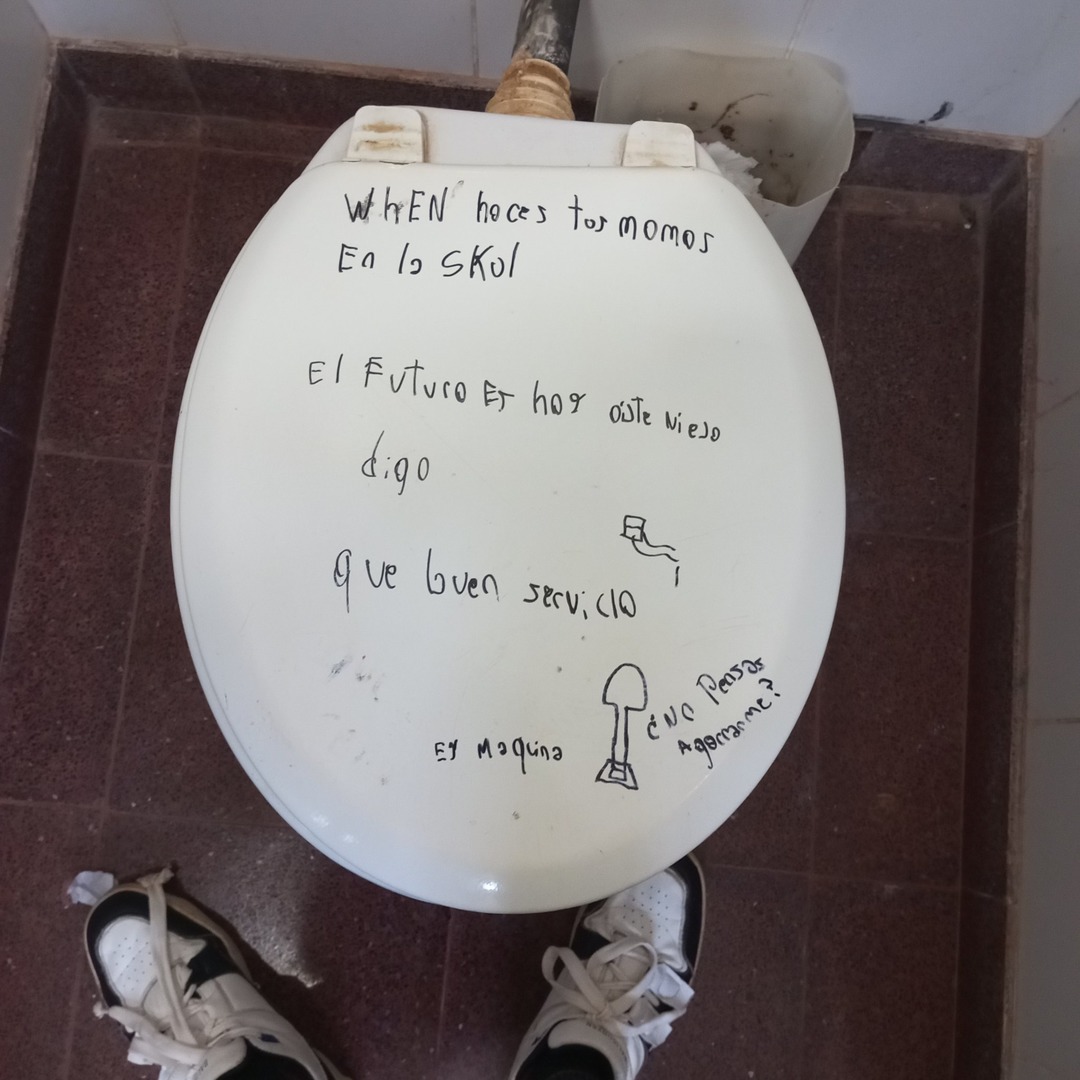 WhEN haces tus momos
En la SKul
El Futuro Es hoy oíste viejo
digo
que buen servicio
Ey Maquina
¿No Pensas
Agarrarme?